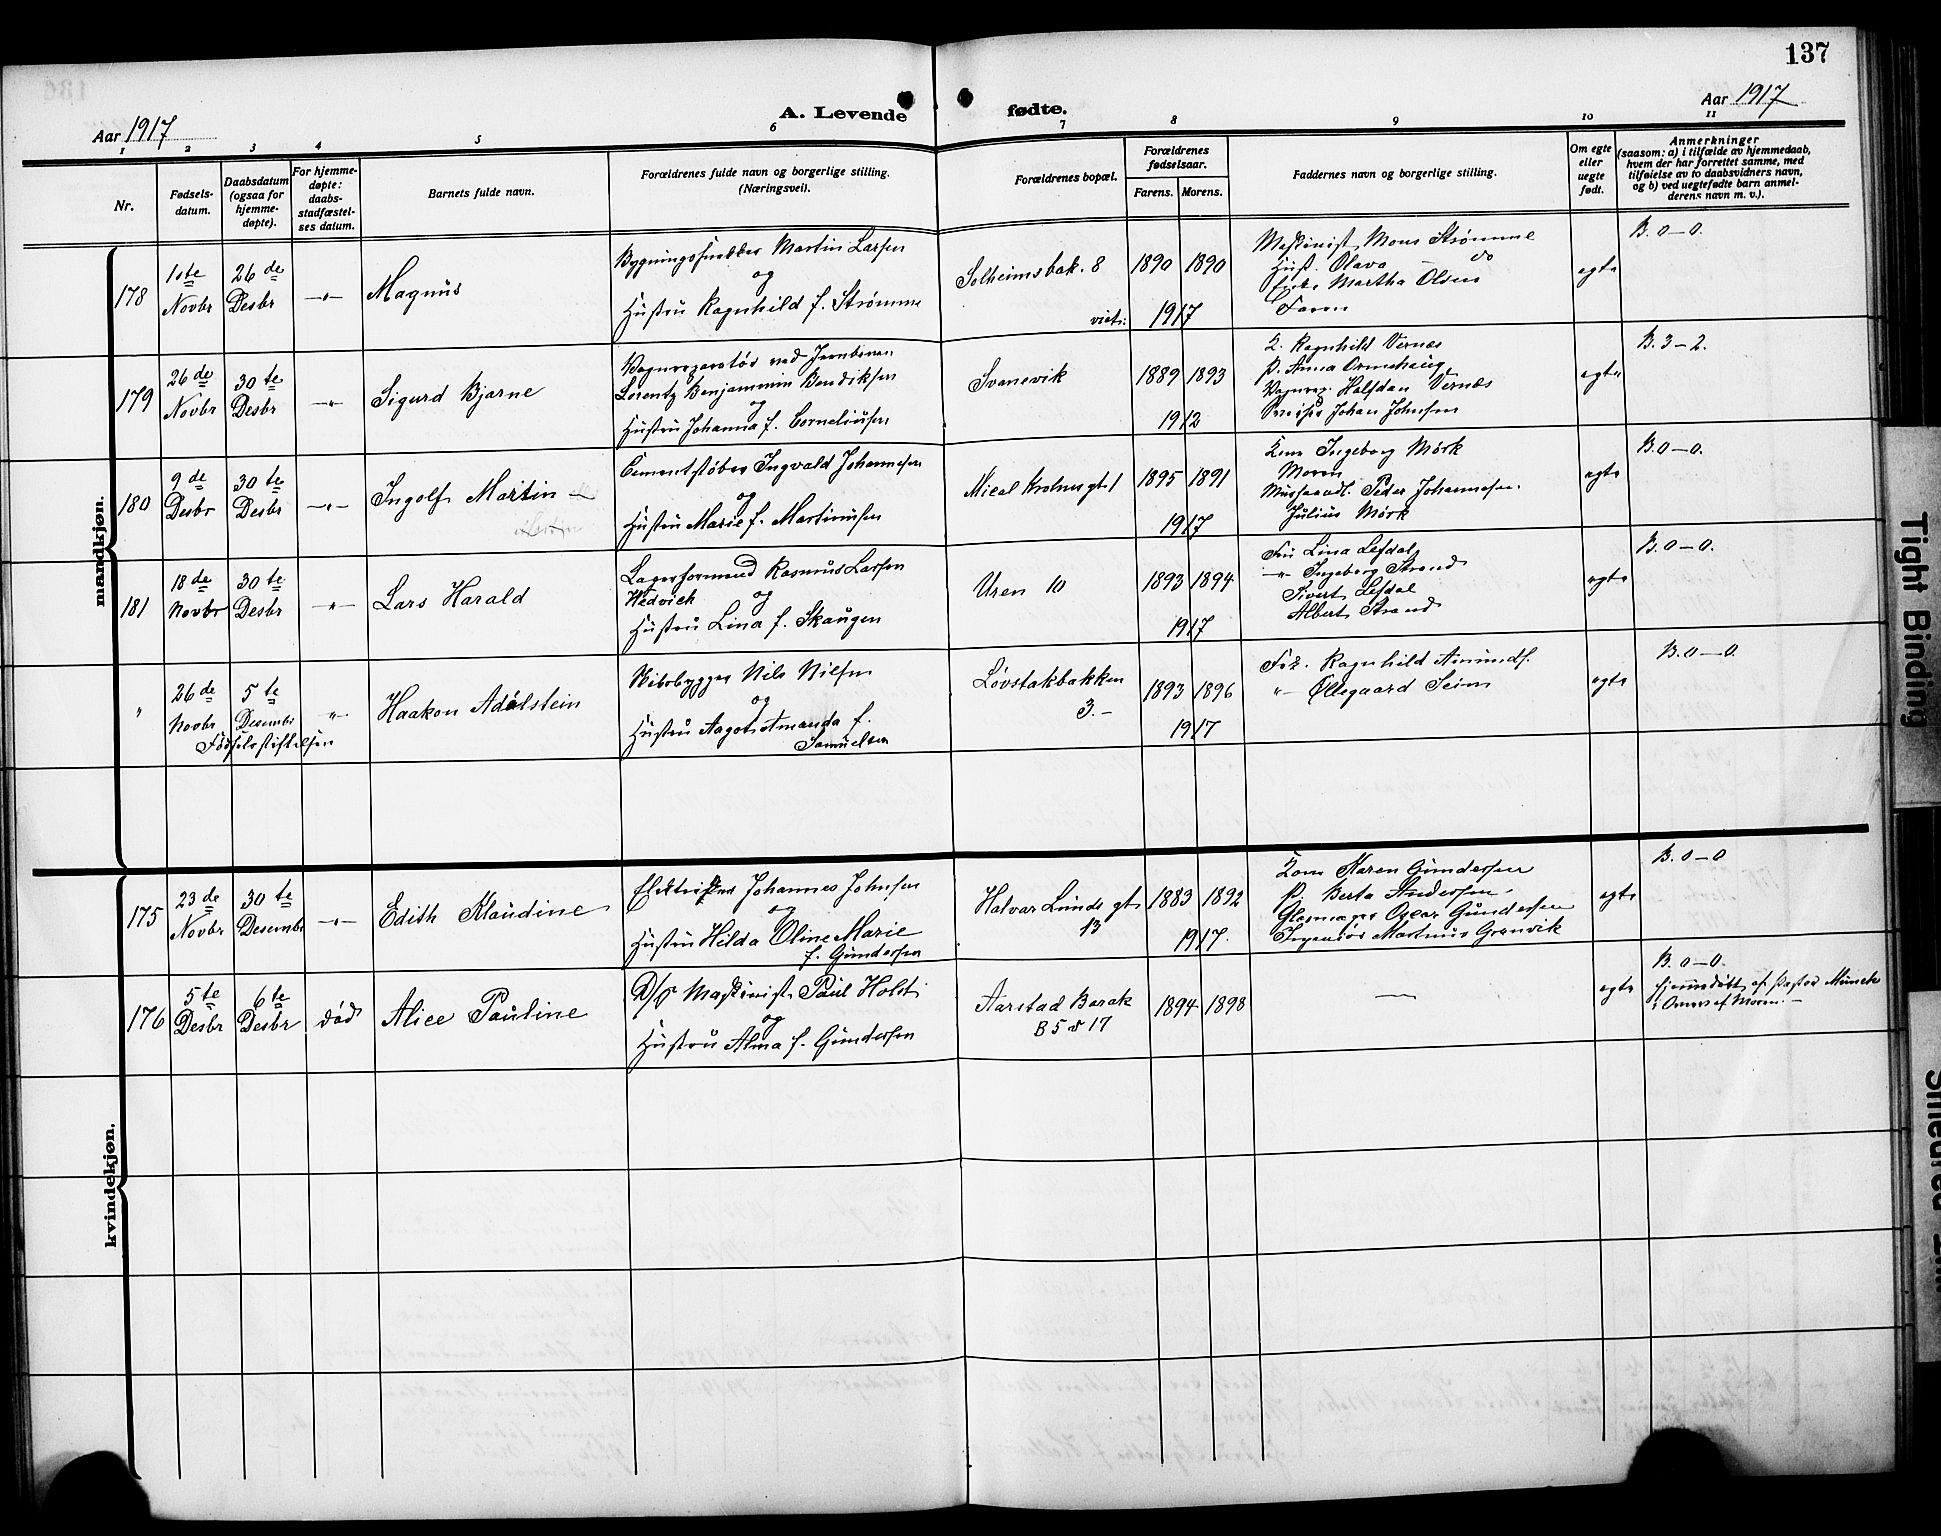 137
Aar 1917
A. Levende fødte.
Aar 1917
1 2 3 4 5 6 7 8 9 10 11
Nr.
Fødsels-
datum.
Daabsdatum
(ogsaa for
hjemme-
døpte).
For hjemme-
døpte:
daabs-
stadfæstel-
ses datum.
Barnets fulde navn.
Forældrenes fulde navn og borgerlige stilling.
(Næringsvei).
Forældrenes bopæl.
Forældrenes
fødselsaar.
Farens. Morens.
Faddernes navn og borgerlige stilling.
Om egte
eller
uegte
født.
Anmerkninger
(saasom: a) i tilfælde av hjemmedaab,
hvem der har forrettet samme, med
tilføielse av to daabsvidners navn,
og b) ved uegtefødte barn anmel-
derens navn m. v.).
mandkjøn.
178
1ste
Novbr
26 de
Desbr
-"-
Magnus
Bygningssnekker Martin Larsen
og
Hustru Ragnhild f. Strømme
Solheimsbak. 8
viet:
1890 1890
1917
Maskinist Mons Strømme
Hust. Olava do
Martha Olsen
Faren
egte
B. 0-0.
179
26 de
Novbr
30 te
Desbr
-"-
Sigurd Bjarne
Vognreparatør ved Jernbanen
Lorentz Benjammin Bendiksen
og
Hustru Johanna f. Corneliussen
Svanevik
1889 1893
1912
K. Ragnhild Vernæs
P. Anna Ormehaug
Vognrep. Halfdan Vernæs
Johan Johnsen
egte
B. 3-2.
180
9 de
Desbr
30 te
Desbr
-"-
Ingolf Martin
Cementstøber Ingvald Johannesen
og
Hustru Marie f. Martinusen
Mical Krohns gt 1
1895 1891
1917
Kone Ingeborg Mørk
Moren
Peder Johannesen.
Julius Mørk
egte
B. 0-0.
181
18 de
Novbr
30 te
Desbr
-"-
Lars Harald
Lagerformand Rasmus Larsen
Hedvick og
Hustru Lina f. Skaugen
Uren 10
1893 1894
1917
Fru Lina Lefdal
-"- Ingeborg Strand
Sivert Lefdal
Albert Strand
egte
B. 0-0.
"
26 de
Novbr
5 te
Desembr
Fødselsstiftelsen
"-
Haakon Adalstein
Skibsbygger Nils Nilsen
og
Hustru Aagot Amanda f.
Samuelsen
Løvstakbakken
3.-
1893 1896
1917
Frk. Ragnhild Amunds.
"- Øllegaard Seim
egte
B. 0-0.
kvindekjøn.
175
23 de
Novbr
30 te
Desembr
-"-
Edith Klaudine
Elektriker Johannes Johnsen
og
Hustru Hilda Oline Marie
f. Gundersen
Halvar Lunds gt
13
1883 1892
1917.
Kone Karen Gundersen
P. Berta Andersen
Glasmager Oscar Gundersen
Ingeniør Martinus Grønvik
egte
B. 0-0
176
5 te
Desbr
6 te
Desbr
død
Alice Pauline
D/S Maskinist Paul Holst
og
Hustru Alma f. Gundersen
Aarstad Barak
B 5 17
1894 1898
—
egte
B. 0-0.
hjemmedøbt af Pastor Münck
af Moren
Tight Binding